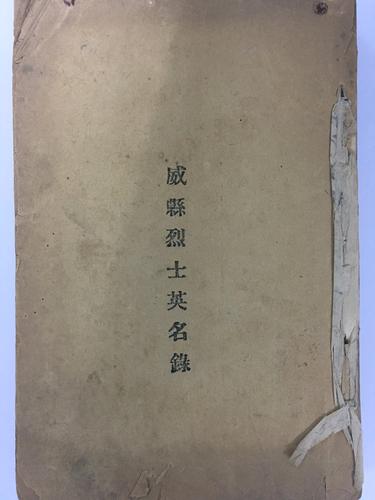 威縣烈士英名錄